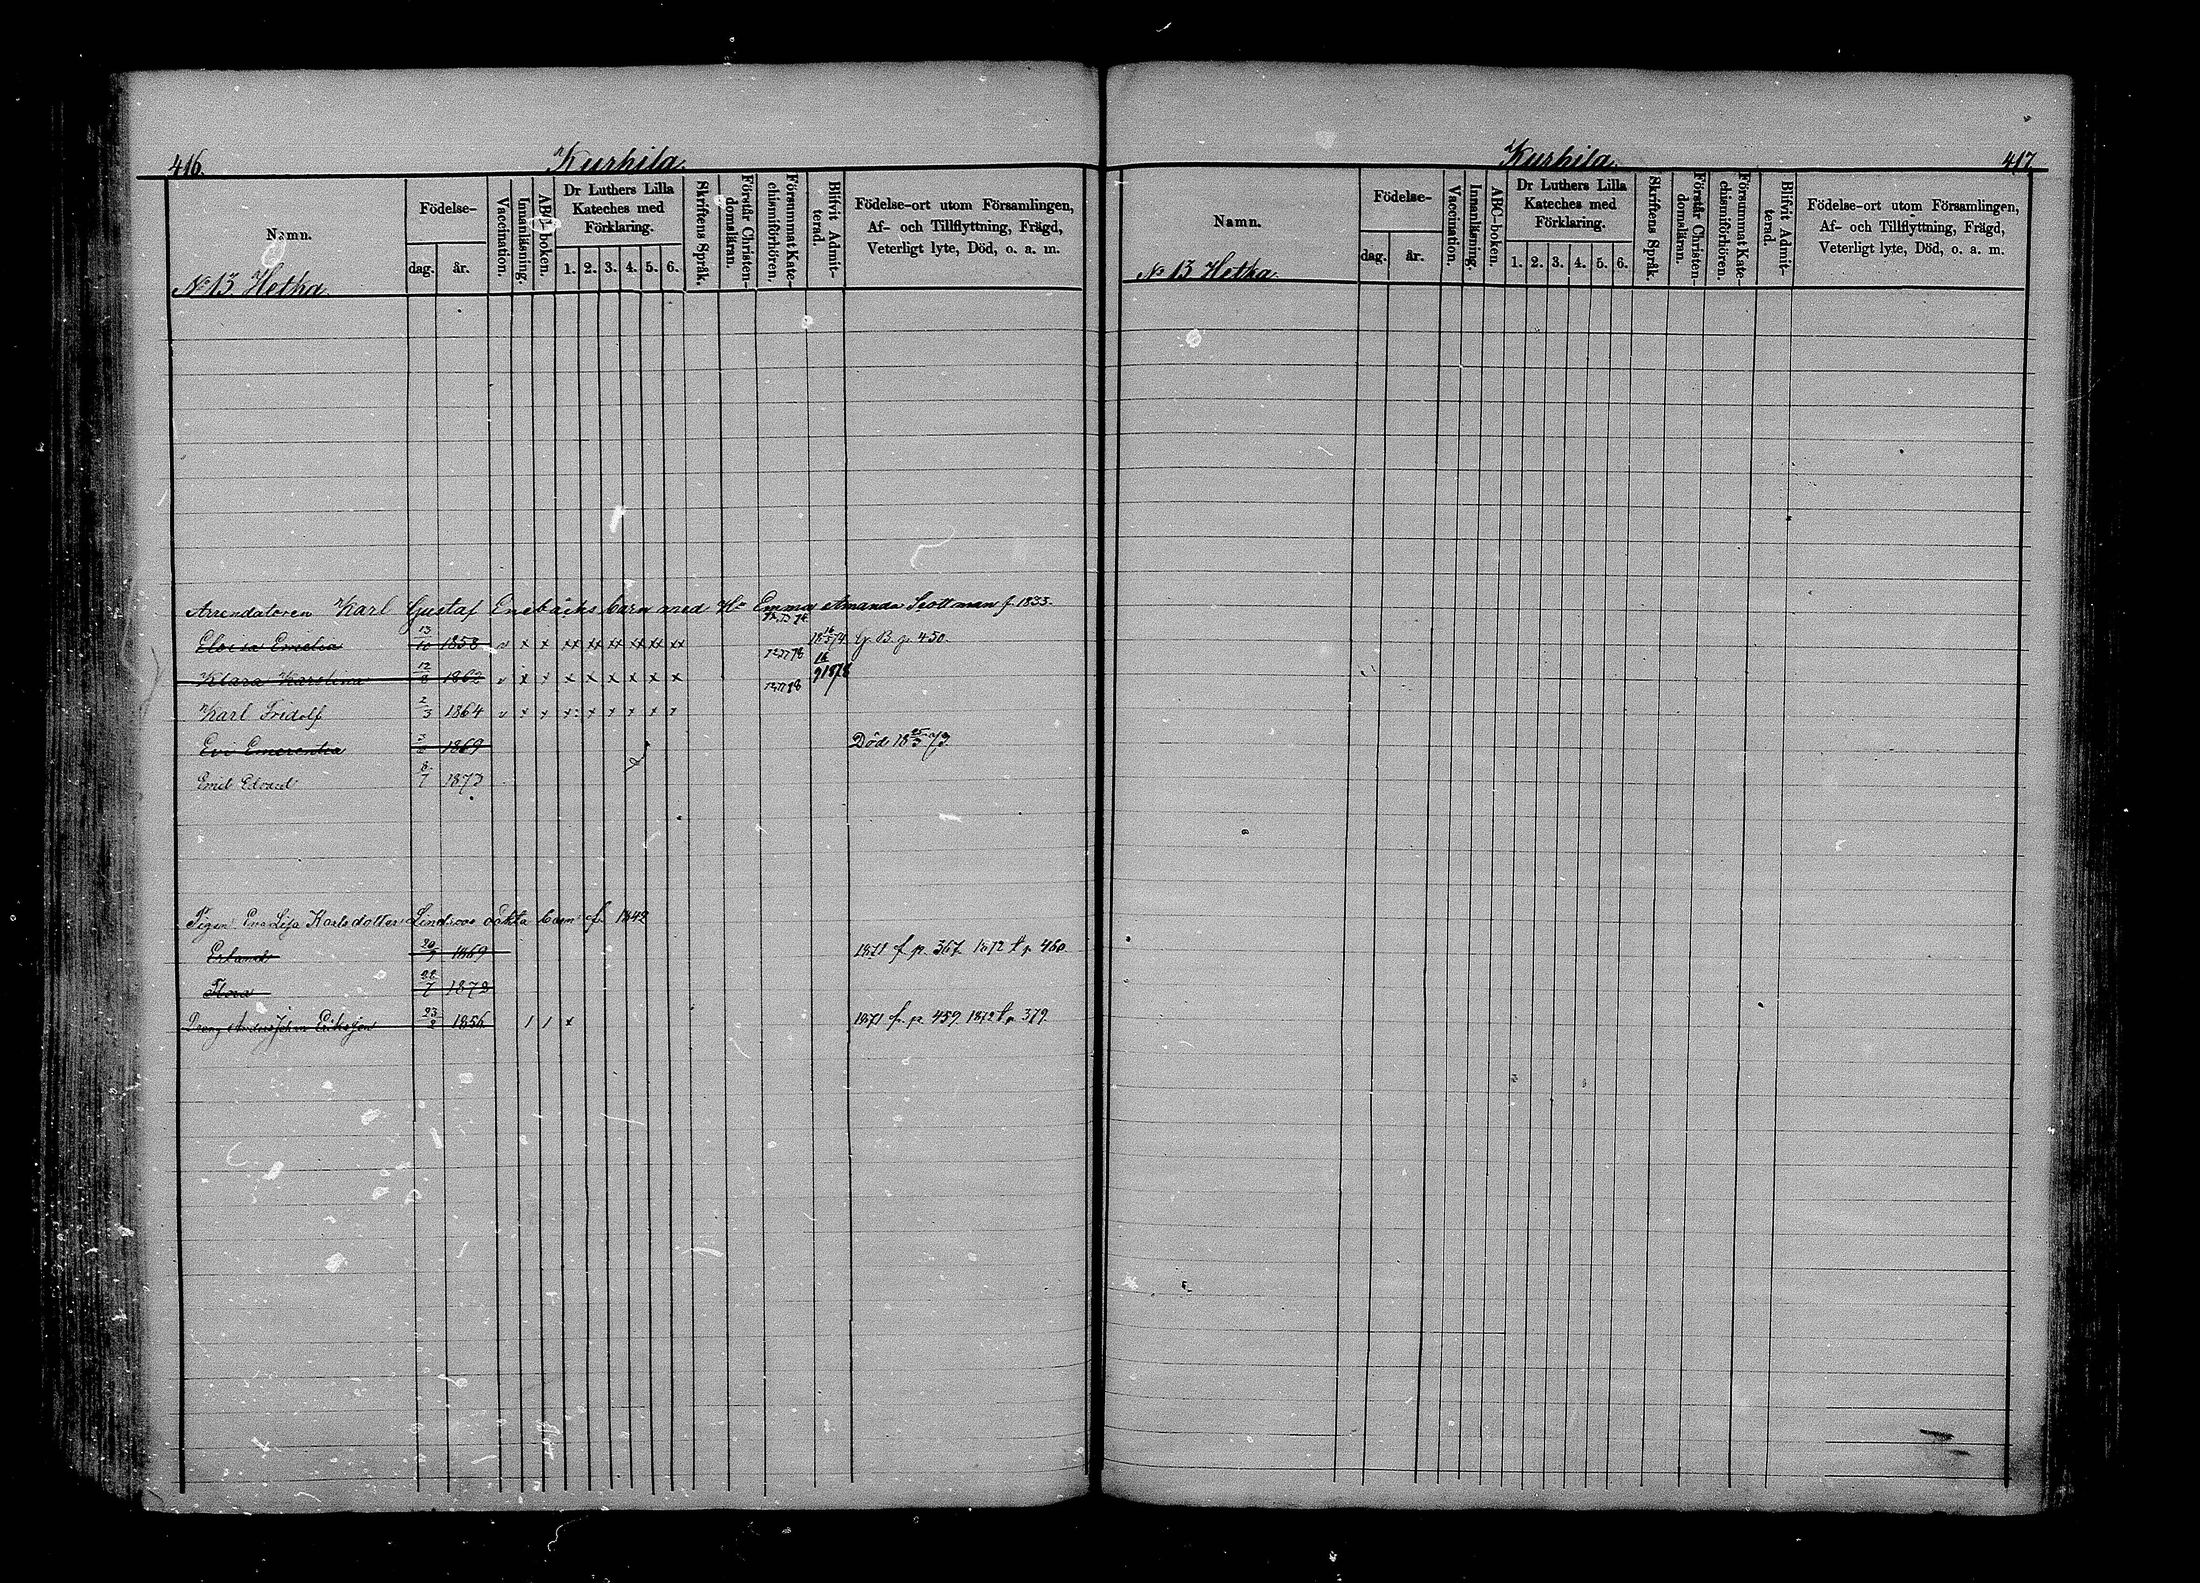 416.
Kurhila.
Namn.
No 13. Hetha.
Födelse-
dag.
år.
Vaccination.
Innanläsning.
ABC-boken.
Dr Luthers Lilla
Kateches med
Förklaring.
1. 2. 3. 4. 5. 6.
Skriftens Språk.
Förstår Christen-
domsläran.
Försummat Kate-
chismiförhören.
Blifvit Admit-
terad.
Födelse-ort utom Församlingen,
Af- och Tillflyttning, Frägd,
Veterligt lyte, Död, o. a. m.
Arrendatoren Karl Gustaf Enebäcks barn med Hu Emma Amanda Scottman f. 1833.
Emelia 13/10 1858 v x x xx xx xx xx xx xx 18 16/5 74 p. 450.
Klara Karolina 12/8 1862 v x x x x x x x x
Karl Fridolf 2/3 1864 v x x x x x x x x
Eva Emerentia 1869 Död 18 25/3 73.
Emil Edvard 8/7 1873
Pigan Eva Lisa Karlsdotter Lindroos oäkta barn f. 1842
Erland 20/9 1869 1871 f. p. 367. 1872 t. p. 460.
Flora 22/7 1872
Dräng Andersjohan Eriksson 23/2 1856 / / x 1871 f. p. 459. 1872 t. p. 379.
Kurhila.
417
Namn.
No 13 Hetha.
Födelse-
dag.
år.
Vaccination.
Innanläsning.
ABC-boken.
Dr Luthers Lilla
Kateches med
Förklaring.
1. 2. 3. 4. 5. 6.
Skriftens Språk.
Förstår Christen-
domsläran.
Försummat Kate-
chismiförhören.
Blifvit Admit-
terad.
Födelse-ort utom Församlingen,
Af- och Tillflyttning, Frägd,
Veterligt lyte, Död, o. a. m.